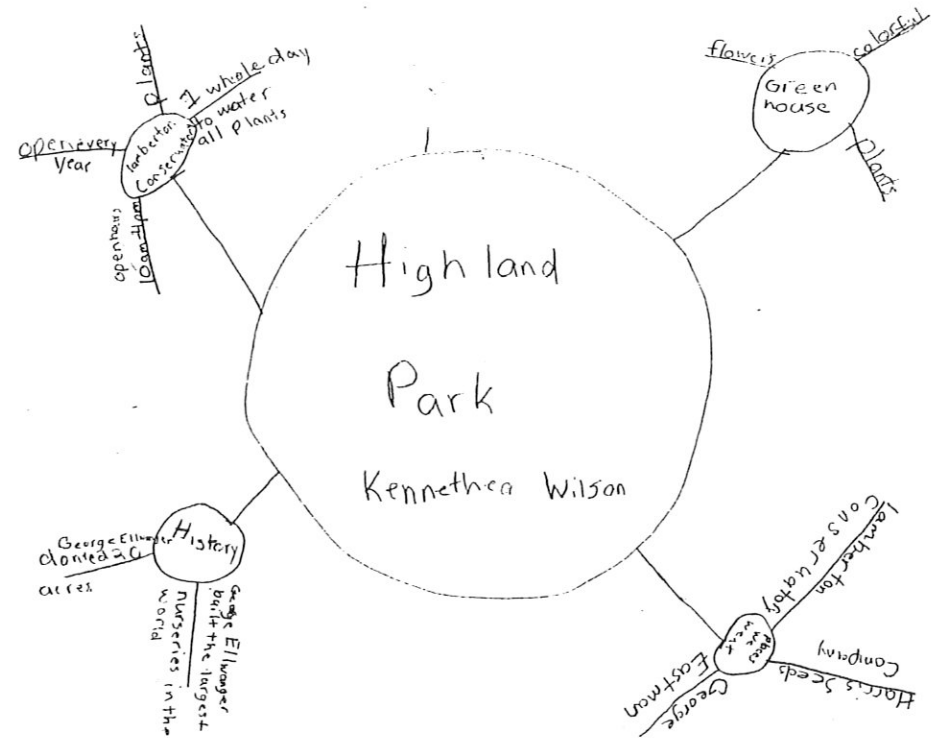 Highland
Park
Kennethea Wilson
lamberton
Conservatory
plants
1 whole day
to water
all plants
open every
year
open hours
10am-4pm
Green
house
flowers
colorful
plants
History
George Ellwanger
donted 20
acres
George Ellwanger
built the largest
nurseries in the
world
Places
we
went
lamberton
Conservatory
Harris Seeds
Company
George
Eastman